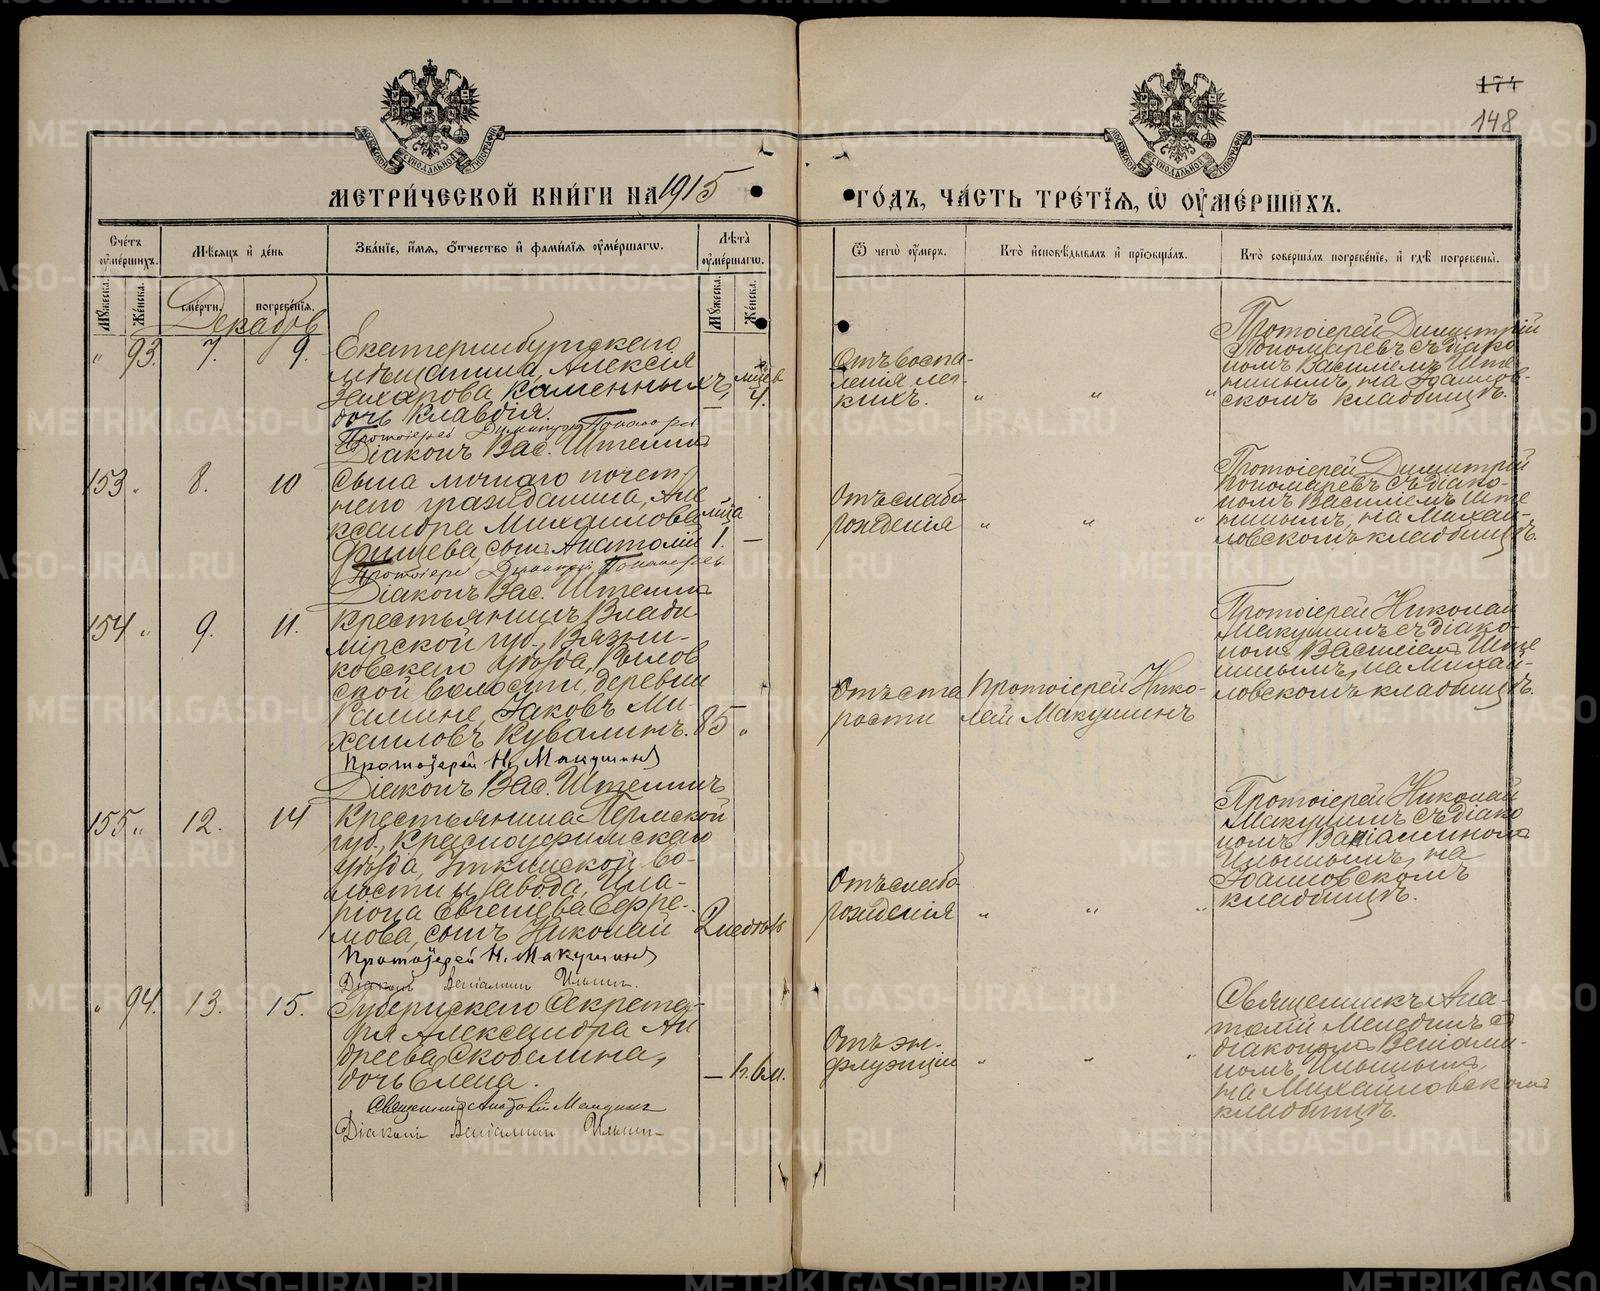 174
148
МЕТРИ́ЧЕСКОЙ КНИ́ГИ НА 1915
ГО́ДЪ, ЧА́СТЬ ТРЕ́ТІѦ, Ѡ҆ ОУ҆МЕ́РШИХЪ.
Сче́тъ оу҆ме́ршихъ.
Мѣ́сѧцъ и҆ де́нь
Зва́нїе, и҆́мѧ, ѻ҆́тчество и҆ фами́лїѧ оу҆ме́ршагѡ.
Лѣ́та оу҆ме́ршагѡ.
Ѿ чегѡ̀ оу҆́меръ.
Кто̀ и҆сповѣ́дывалъ и҆ прїѡбща́лъ.
Кто̀ соверша́лъ погребе́нїе, и҆ гдѣ̀ погребены̀.
Мꙋ́жеска.
Же́нска.
сме́рти.
погребе́нїѧ.
Мꙋ́жеска.
Же́нска.
Декабрь
" 93. 7. 9.
Екатеринбургскаго
мѣщанина, Алексія
Захарова Каменныхъ,
дочь Клавдія.
Протоіерей Димитрій Пономаревъ
Діаконъ Вас. Штеннинъ
— 4.
Отъ воспа-
ленія лег-
кихъ.
" " "
Протоіерей Димитрій
Пономаревъ съ діако
номъ Василіемъ Ште
ннымъ, на Іоаннов-
скомъ кладбищѣ.
153 " 8. 10
Сына личнаго почет-
наго гражданина, Але
ксандра Михаилова
сынъ Анатолій
Протоіерей Димитрій Пономаревъ
Діаконъ Вас. Штеннинъ
мца
1. —
Отъ слабо
рожденія
" " "
Протоіерей Димитрій
Пономаревъ съ діако-
номъ Василіемъ Ште
ннымъ, на Михай-
ловскомъ кладбищѣ.
154 " 9. 11.
Крестьянинъ Влади
мірской губ., Вязни-
ковскаго уѣзда, Рылов
ской волости, деревни
Рамине, Іаковъ Ми-
хаиловъ Кувалинъ.
85 "
Протоіерей Н. Макушинъ
Діаконъ Вас. Штеннинъ
Отъ ста
рости
Протоіерей Нико-
лай Макушинъ
Протоіерей Николай
Макушинъ съ діако-
номъ Василіемъ Ште
ннымъ, на Михай-
ловскомъ кладбищѣ.
155 " 12. 14
Крестьянина Пермской
губ., Красноуфимскаго
уѣзда, Уткинской во-
лости и завода, Ила-
ріона Евгеніева Ефре-
мова, сынъ Николай
2 недѣль
Протоіерей Н. Макушинъ
Діаконъ Веніаминъ Ильинъ.
Отъ слабо
рожденія
" " "
Протоіерей Николай
Макушинъ съ діако
номъ Веніаминомъ
Ильинымъ, на
Іоанновскомъ
кладбищѣ.
" 94. 13. 15.
Губернскаго Секрета-
ря Александра Ан
дреева Скобелина,
дочь Елена.
— 1 г. 6 м.
Священникъ Анатолій Мендинъ
Діаконъ Веніаминъ Ильинъ
Отъ эн-
флуэнціи
" " "
Священникъ Ана-
толій съ
діакономъ Веніами-
номъ Ильинымъ,
на Михайловскомъ
кладбищѣ.
METRIKI.GASO-URAL.RU